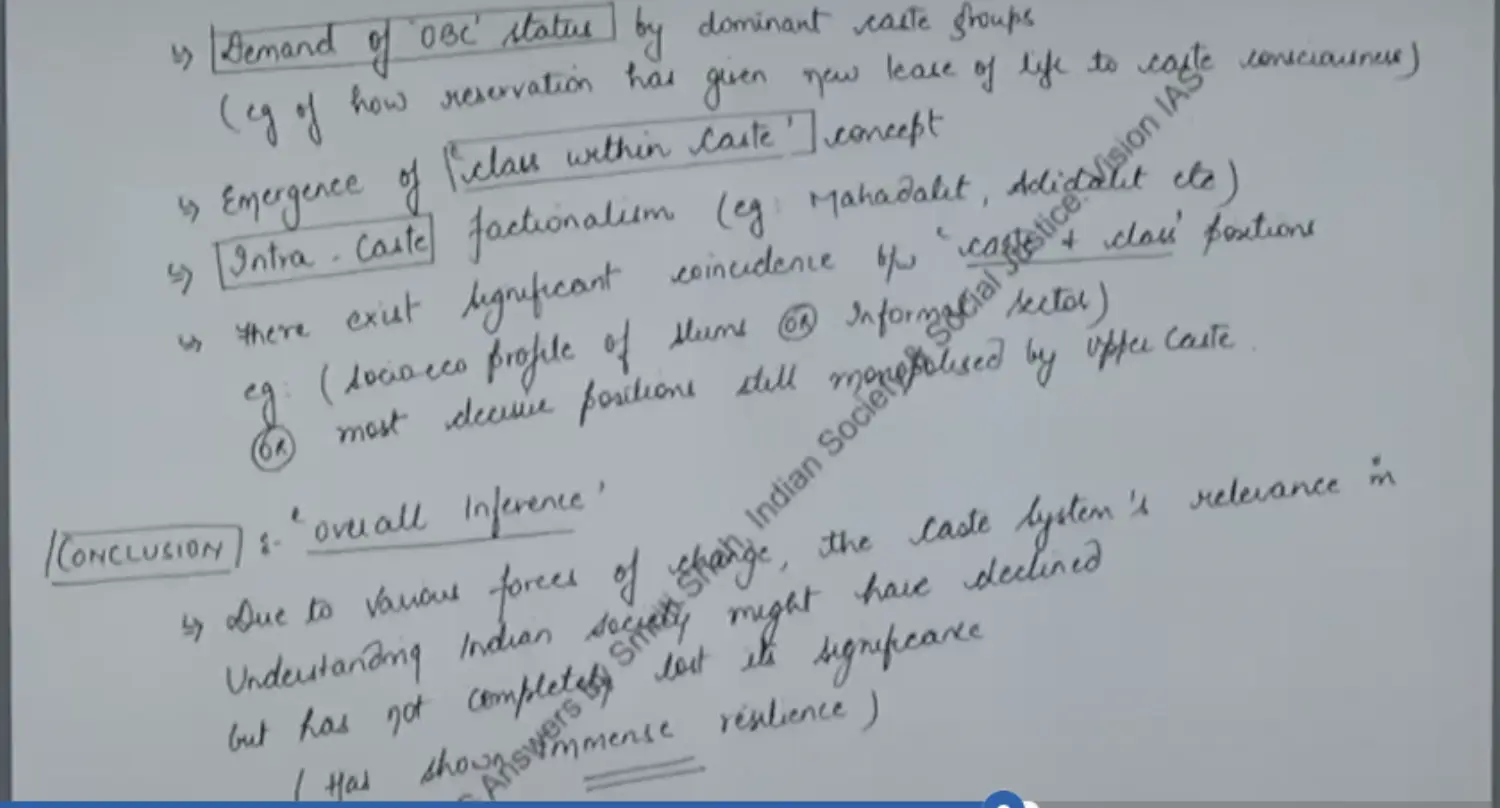 ↳ Demand of 'OBC' status by dominant caste groups
(eg of how reservation has given new lease of life to caste consciousness)
↳ Emergence of 'class within caste' concept
↳ Intra-Caste factionalism (eg: Mahadalit, Adidalit etc)
↳ there exist significant coincidence b/w 'caste + class' positions
eg: (socio-eco profile of slums OR Informal sector)
OR most decisive positions still monopolised by upper caste.
CONCLUSION :- 'overall Inference'
↳ Due to various forces of change, the caste system's relevance in
Understanding Indian society might have declined
but has not completely lost its significance
(Has shown immense resilience)
Answers by Smriti Shah, Indian Society & Social Justice. Vision IAS